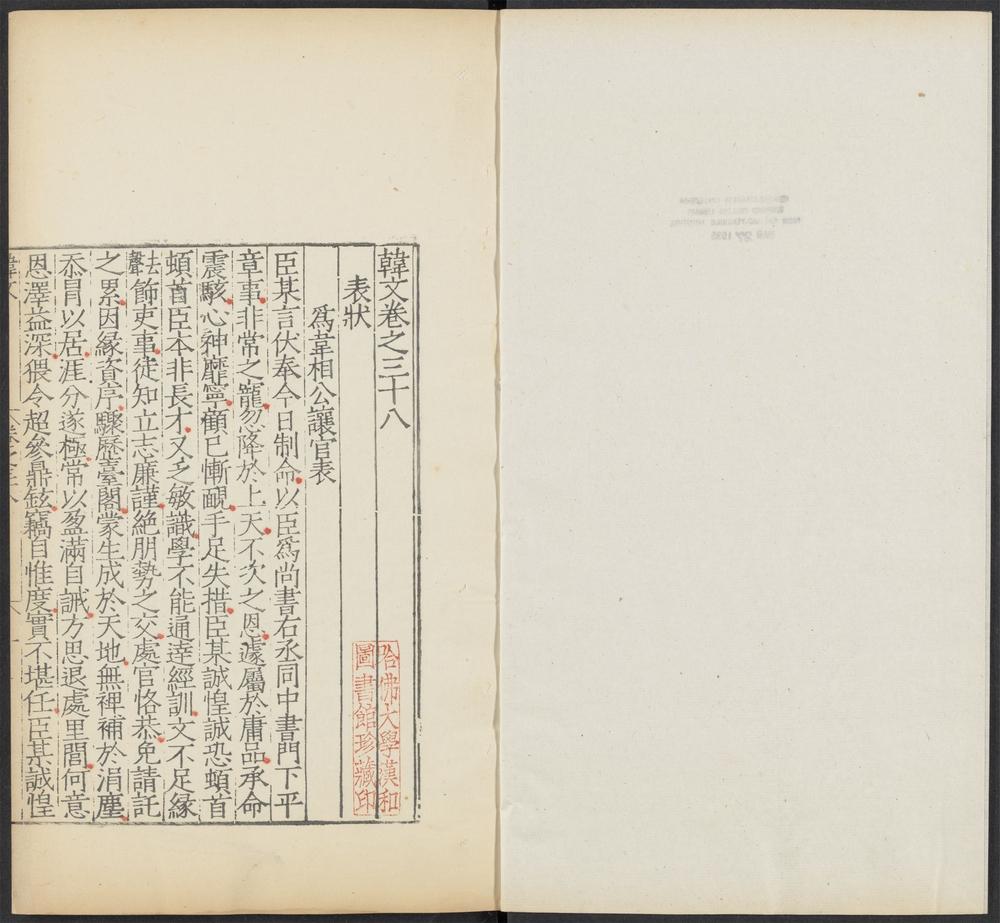 韓文卷之三十八
表狀
爲韋相公讓官表
臣某言伏奉今日制命以臣爲尚書右丞同中書門下平
章事非常之寵忽降於上天不次之恩遽屬於庸品承命
震駭心神靡寧顧已慚靦手足失措臣某誠惶誠恐頓首
頓首臣本非長才又乏敏識學不能通逹經訓文不足緣
去聲飾吏事徒知立志廉謹絶朋勢之交處官恪恭免請託
之累因緣資序驟歷臺閣蒙生成於天地無裨補於涓塵
忝冐以居涯分遂極常以盈滿自誡方思退處里閭何意
恩澤益深猥令超參鼎鉉竊自惟度實不堪任臣某誠惶
哈佛大學漢和
圖書館珍藏印